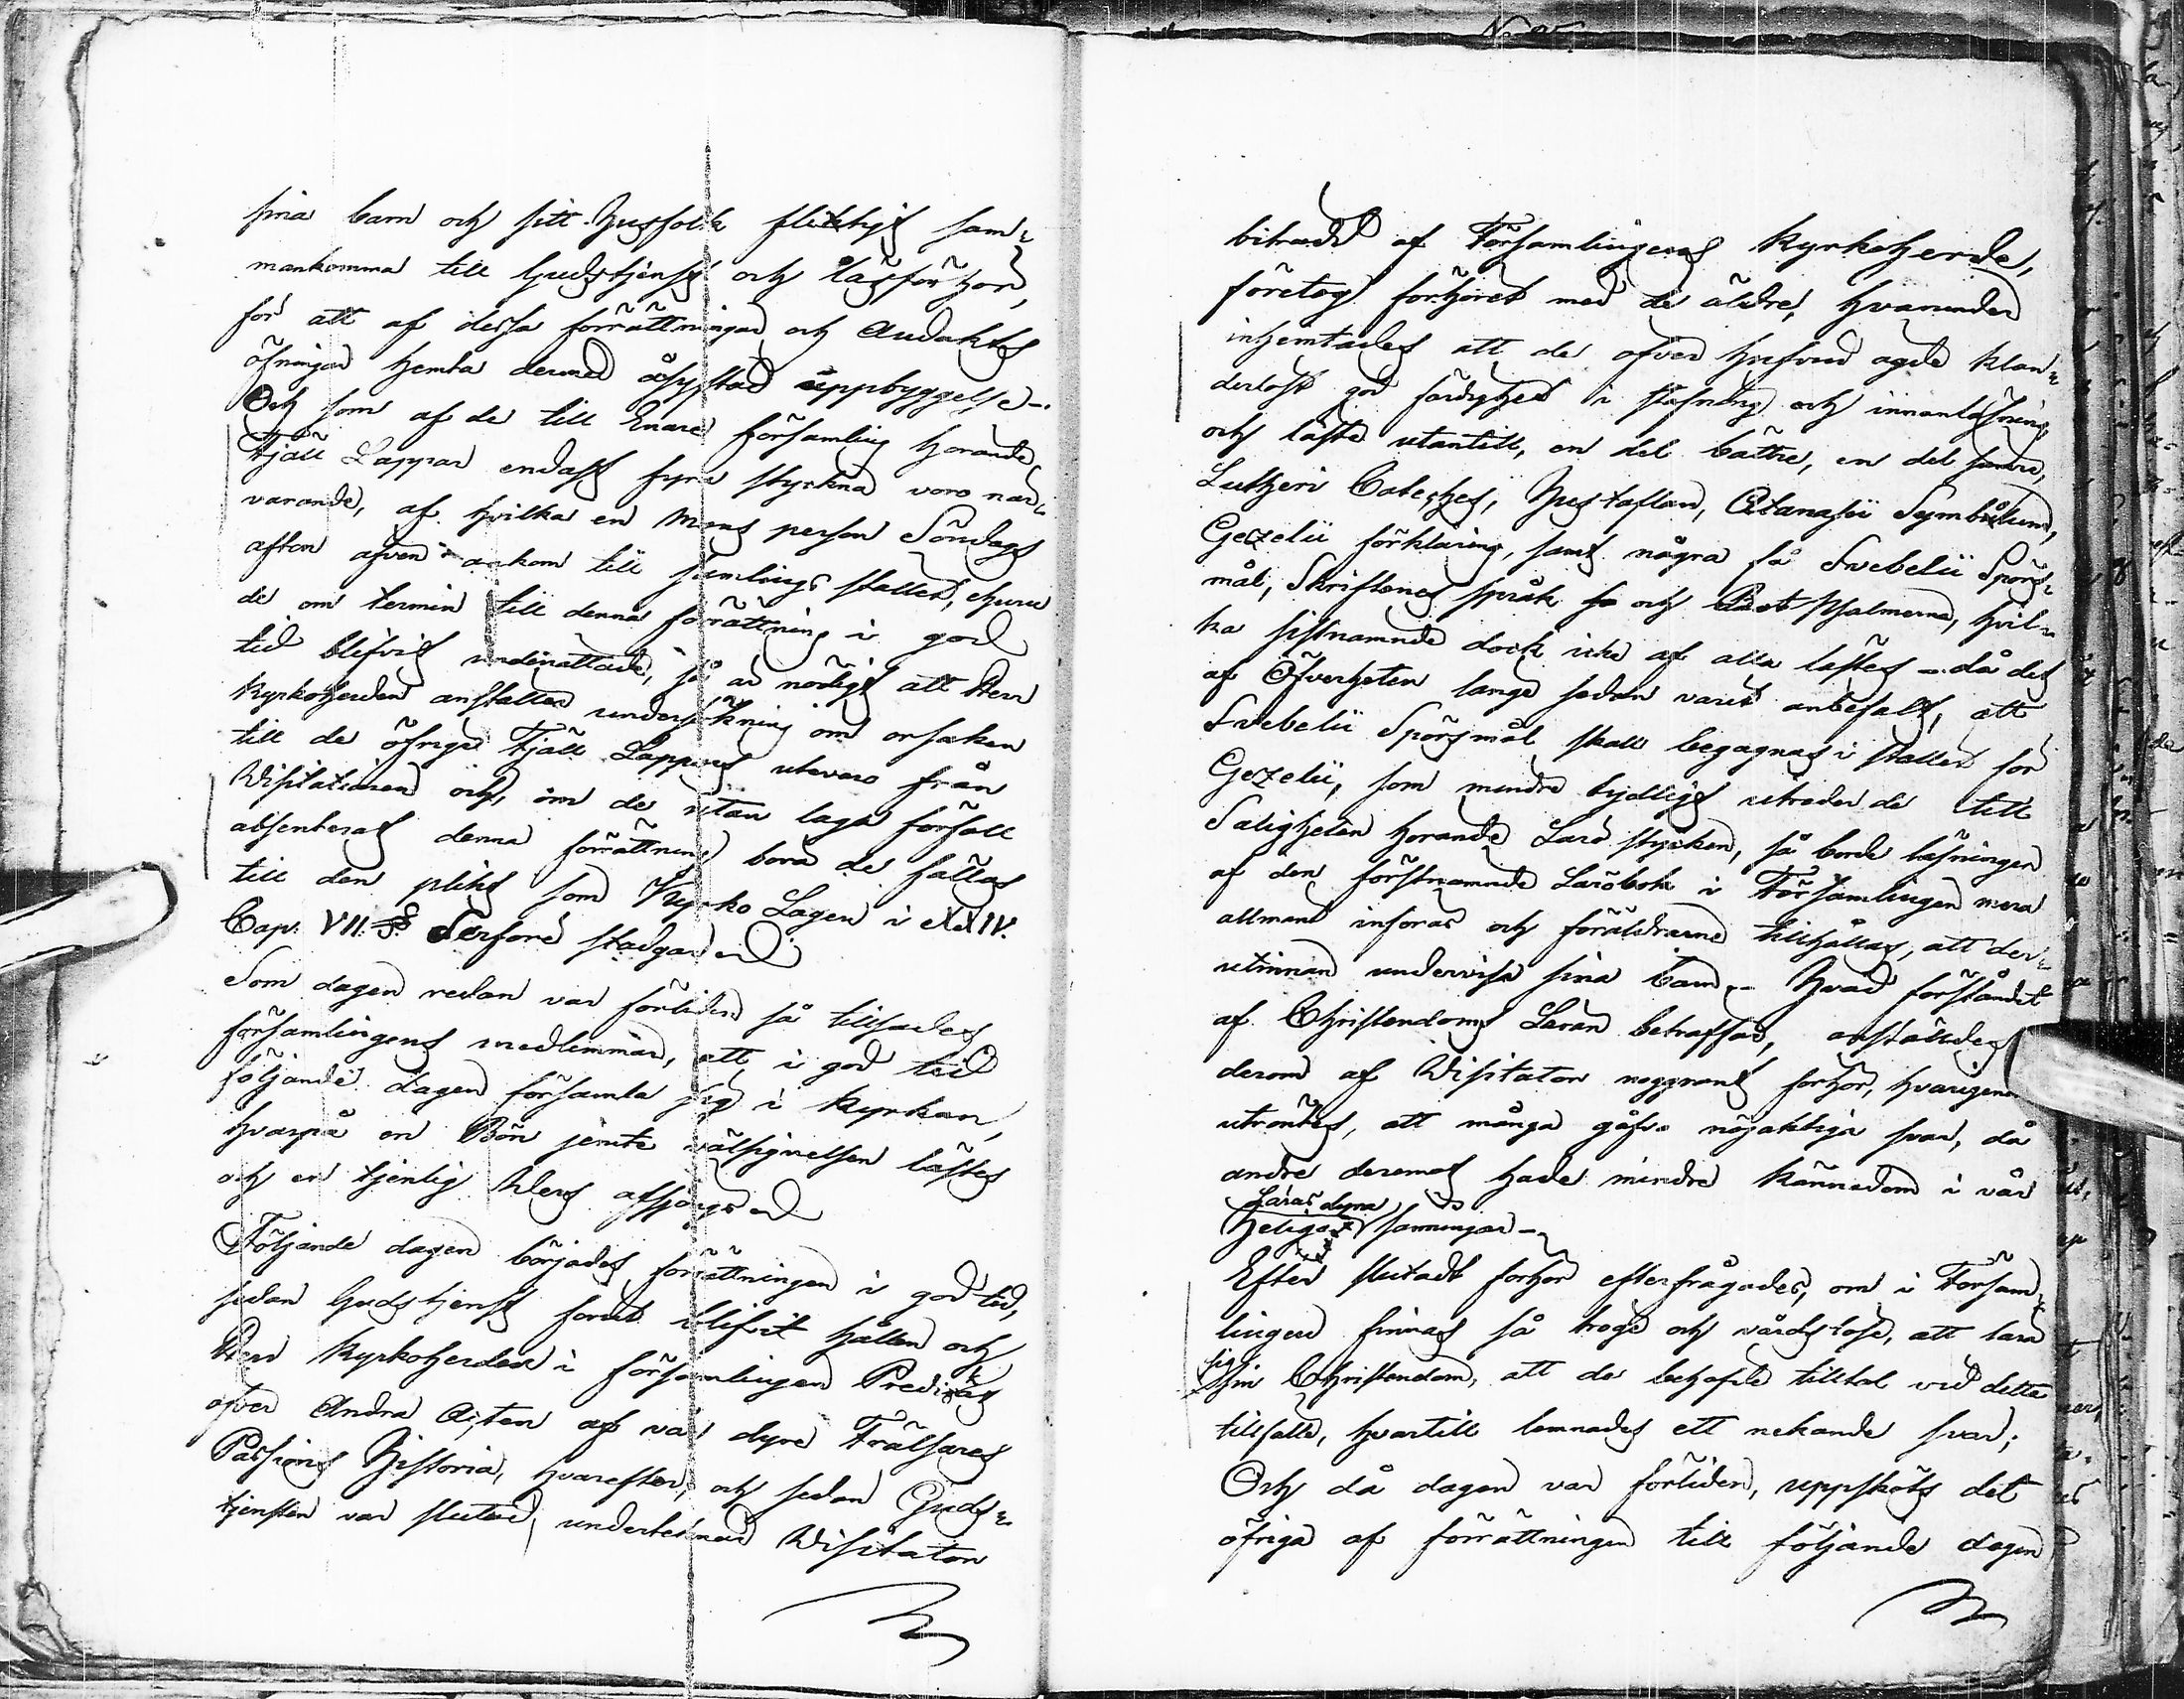 sina barn och sitt husfolk flitigt sam=
mankomma till Gudstjenst och läsförhör,
för att af dessa förrättningar och Andakts
öfningar hemta dermed åsyftad uppbyggelse -.
Och som af de till Enare församling hörande
Fjäll Lappar endast fyra stycken voro när=
varande, af hvilka en Mans person Söndags
afton äfven ankom till samlings stället, ehuru
de om termin till denna förrättning i god
tid blifvit underrättade, så är nödigt att Herr
Kyrkoherden anställer undersökning om orsaken
till de öfriga Fjäll Lappars utevaro från
Visitationen och, om de utan laga förfall
absenterat denna förrättning böra de fällas
till den plikt som Kyrko Lagen i XXIV.
Cap. VII. § derföre stadgar
Som dagen redan var förliden så tillsades
församlingens medlemmar, att i god tid
följande dagen församla sig i kyrkan,
hvarpå en Bön jemte välsignelsen lästes
och en tjenlig vers afsjöngs
Följande dagen börjades förrättningen i god tid,
sedan Gudstjenst förut blifvit hållen och
Herr Kyrkoherden i församlingen Predikat
öfver Andra Acten af vår dyre Frälsares
Passions Historia, hvarefter, och sedan Guds=
tjensten var slutad, undertecknad Visitator
biträdd af Församlingens Kyrkoherde,
företog förhöret med de äldre, hvarunder
inhemtades att de öfver hufvud ägde klan=
derlöst god färdighet i stafning och innanläsning
och läste utantill, en del bättre, en del sämre,
Lutheri Cateches, Hustaflan, Atanasii Symbolum,
Gezelii förklaring, samt några få Svebelii Spörs=
mål, Skriftenes språk och Bot Psalmerna, hvil=
ka sistnämnde dock icke af alla lästes - då det
af Öfverheten länge sedan varit anbefalt, att
Svebelii Spörsmål skall begagnas i stället för
Gezelii, som mindre tydligt utreder de till
Saligheten hörande Läro stycken, så borde läsningen
af den förstnämnde Lärobok i Församlingen mera
allmänt införas och föräldrarne tillhållas, att der=
utinnan undervisa sina barn. - Hvad förståndet
af Christendoms Läran beträffar, anställdes
derom af Visitator noggrant förhör, hvarigenom
utröntes, att många gåfvo nöjaktiga svar, då
andre deremot hade mindre kännedom i vår
Läras dyra
heliga sanningar -
Efter slutadt förhör efterfrågades, om i Försam=
lingen finnas så tröge och vårdslöse, att lära
sig
sin Christendom, att de behöfde tilltal vid detta
tillfälle, hvartill lemnades ett nekande svar;
Och då dagen var förliden, uppsköts det
öfriga af förrättningen till följande dagen